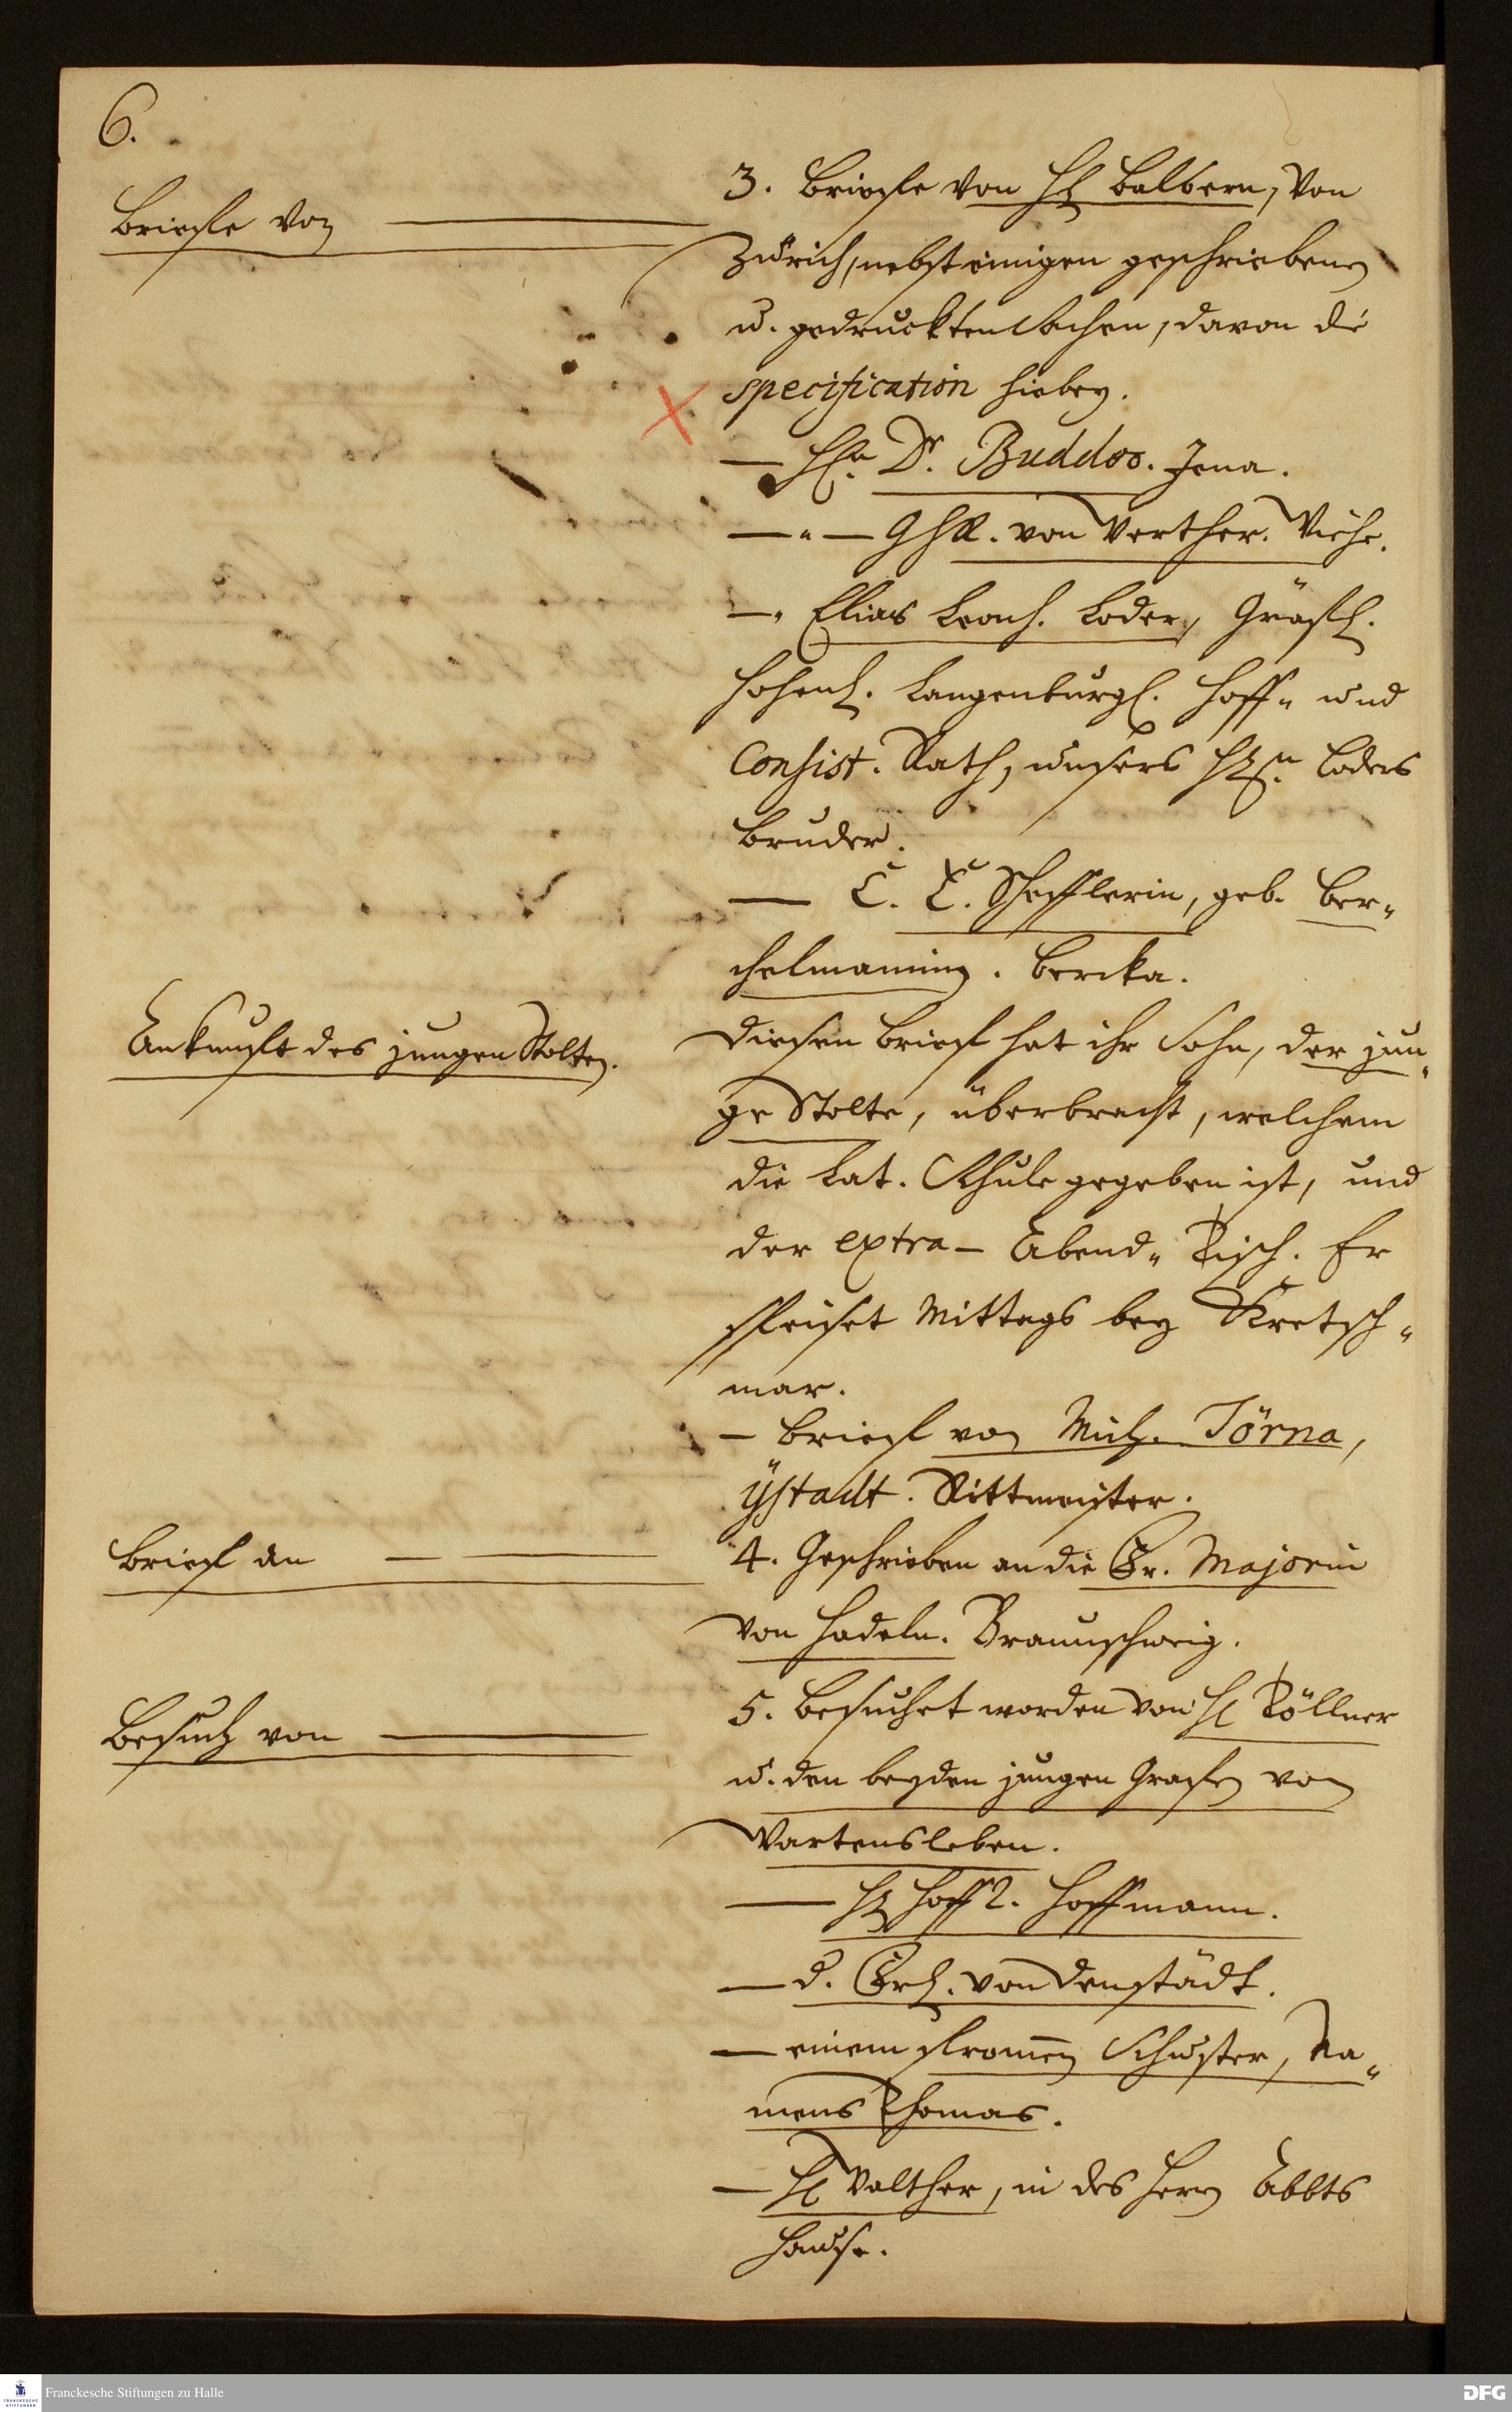 6.
Briefe von
3. Briefe von H. Balbern, von
Zürich, nebst einigen geschriebenen
u. gedruckten Sachen, davon die
specification hiebey.
— HE. Dr. Buddeo. Jena.
von Werther. Wiehe.
Elias Leonh. Loder, Gräfl.
Hohenl. Langenburgl. Hoff- und
Consist. Rath, unsers Loders
Bruder.
— C. C. Schefflerin, geb. Ber-
chelmannin. Bercka.
Ankunft des jungen Stolten.
Diesen Brief hat ihr Sohn, der jun-
ge Stolte, überbracht, welchem
die Lat. Schule gegeben ist, und
der extra- Abend- Tisch. Er
speiset Mittags bey Kretsch-
mar.
— Brief von Mich. Törna,
Ÿstadt. Rittmeister.
Brief an
4. Geschrieben an die Fr. Majorin
von Hadeln. Braunschweig.
Besuch von
5. Besuchet worden von H. Töllner
u. den beyden jungen Grafen von
Wartensleben.
— H. Hoffr. Hoffmann.
— d. Frl. von Denstädt.
— einem from̄en Schuster, Na-
mens Thomas.
— H. Walther, in des Herrn Abbts
Hause.
Franckesche Stiftungen zu Halle
DFG